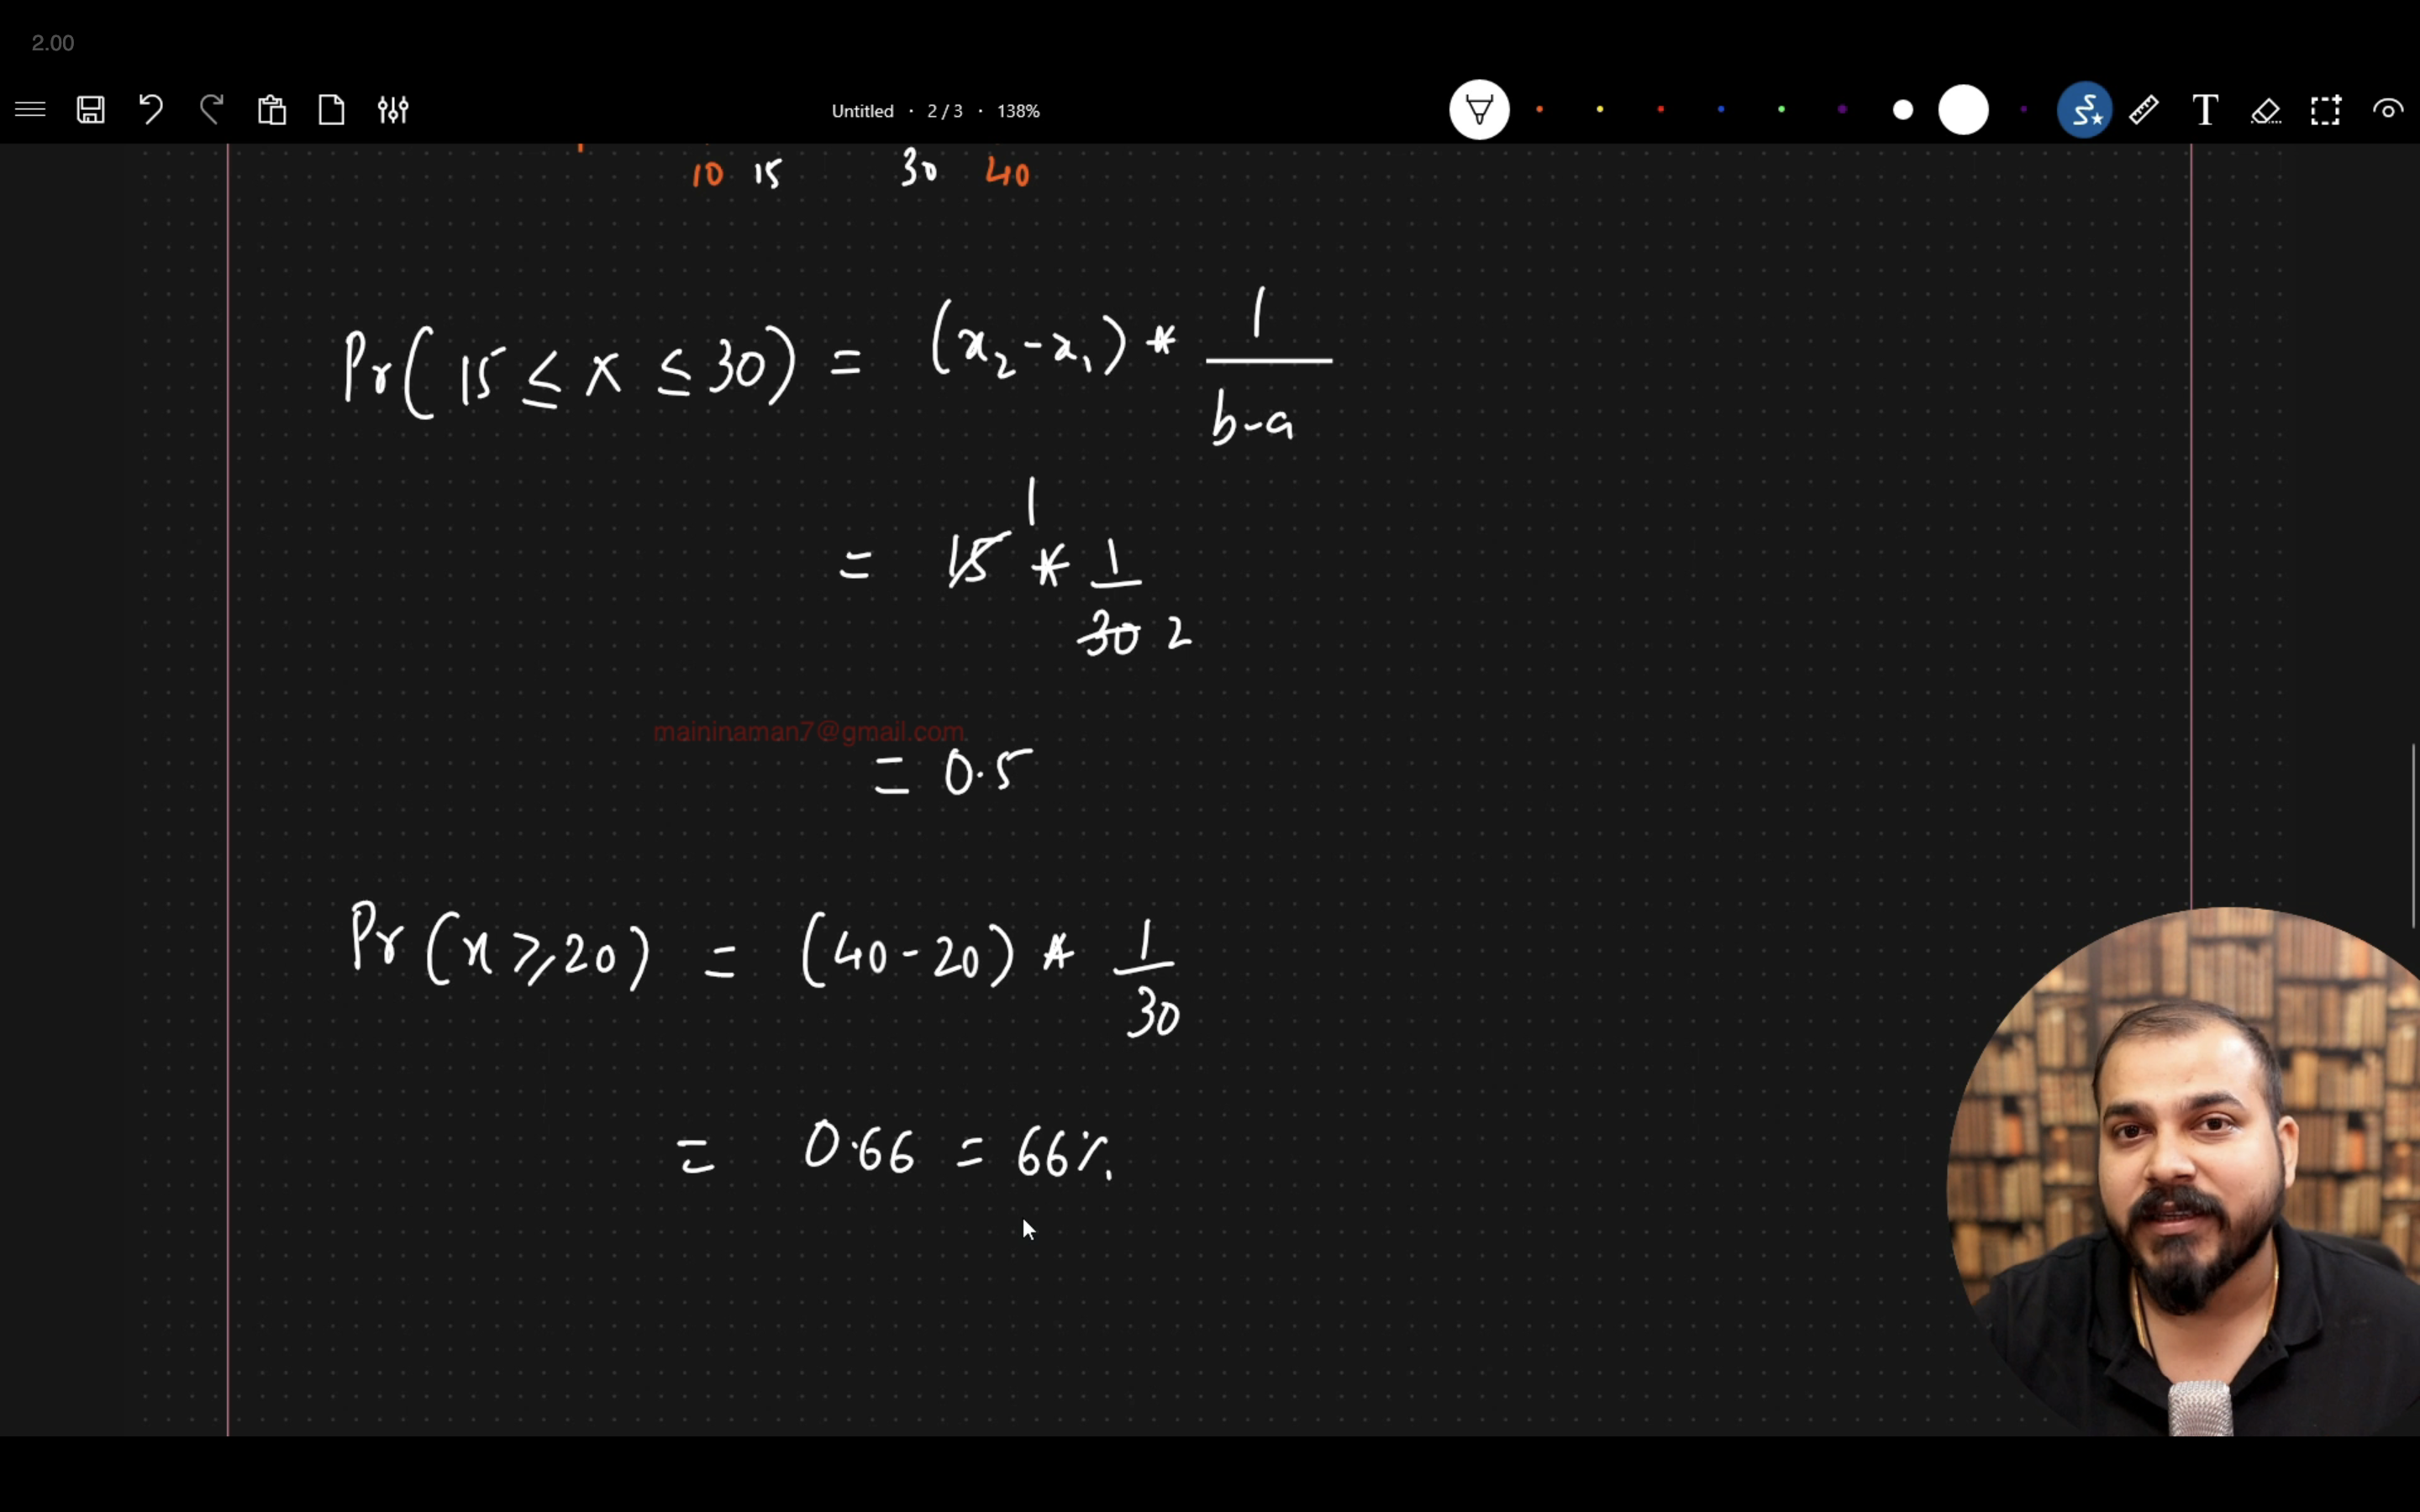 2.00
Untitled · 2 / 3 · 138%
T
10 15 30 40
Pr( 15 ≤ x ≤ 30) = (x₂-x₁) * 1
b-a
1
= 15 * 1
30 2
maininaman7@gmail.com
= 0.5
Pr (x ≥ 20) = (40-20) * 1
30
= 0.66 = 66%